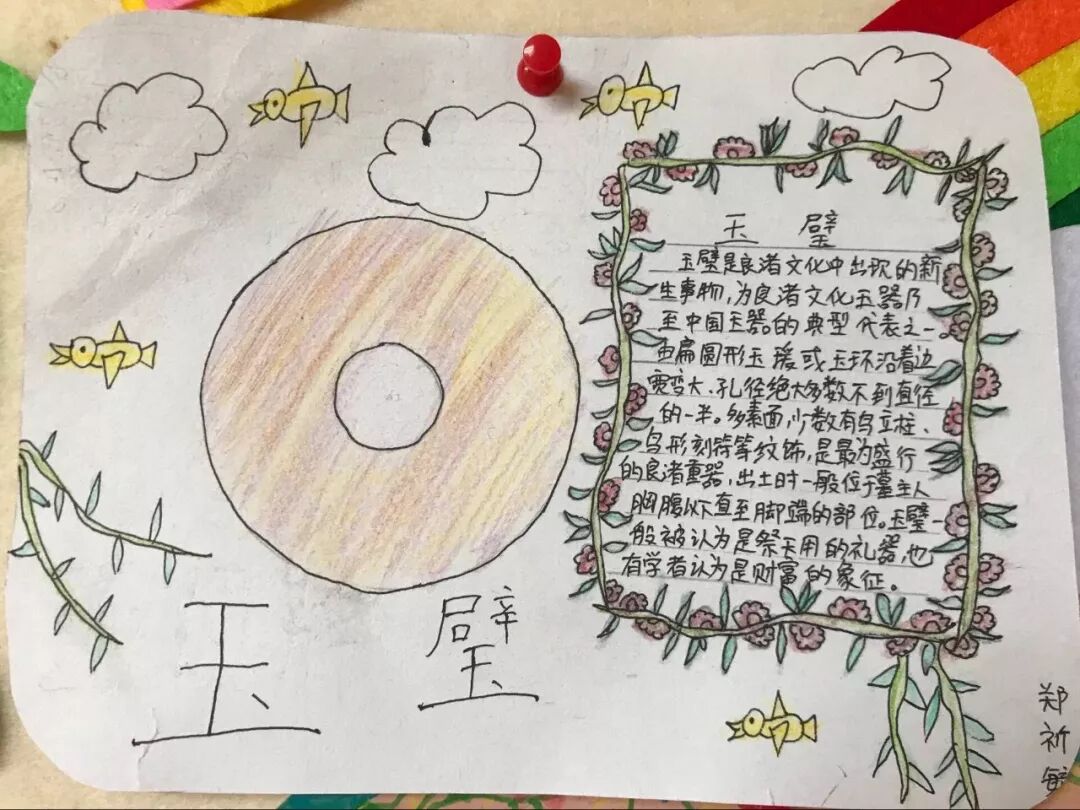 玉璧
玉璧是良渚文化中出现的新
生事物,为良渚文化玉器乃
至中国玉器的典型代表之一。
由扁圆形玉瑗或玉环沿着边
宽变大、孔径绝大多数不到直径
的一半。多素面,少数有鸟立柱、
鸟形刻符等纹饰,是最为盛行
的良渚重器,出土时一般位于墓主人
胸腹以下直至脚端的部位。玉璧一
般被认为是祭天用的礼器,也
有学者认为是财富的象征。
玉璧
郑祈